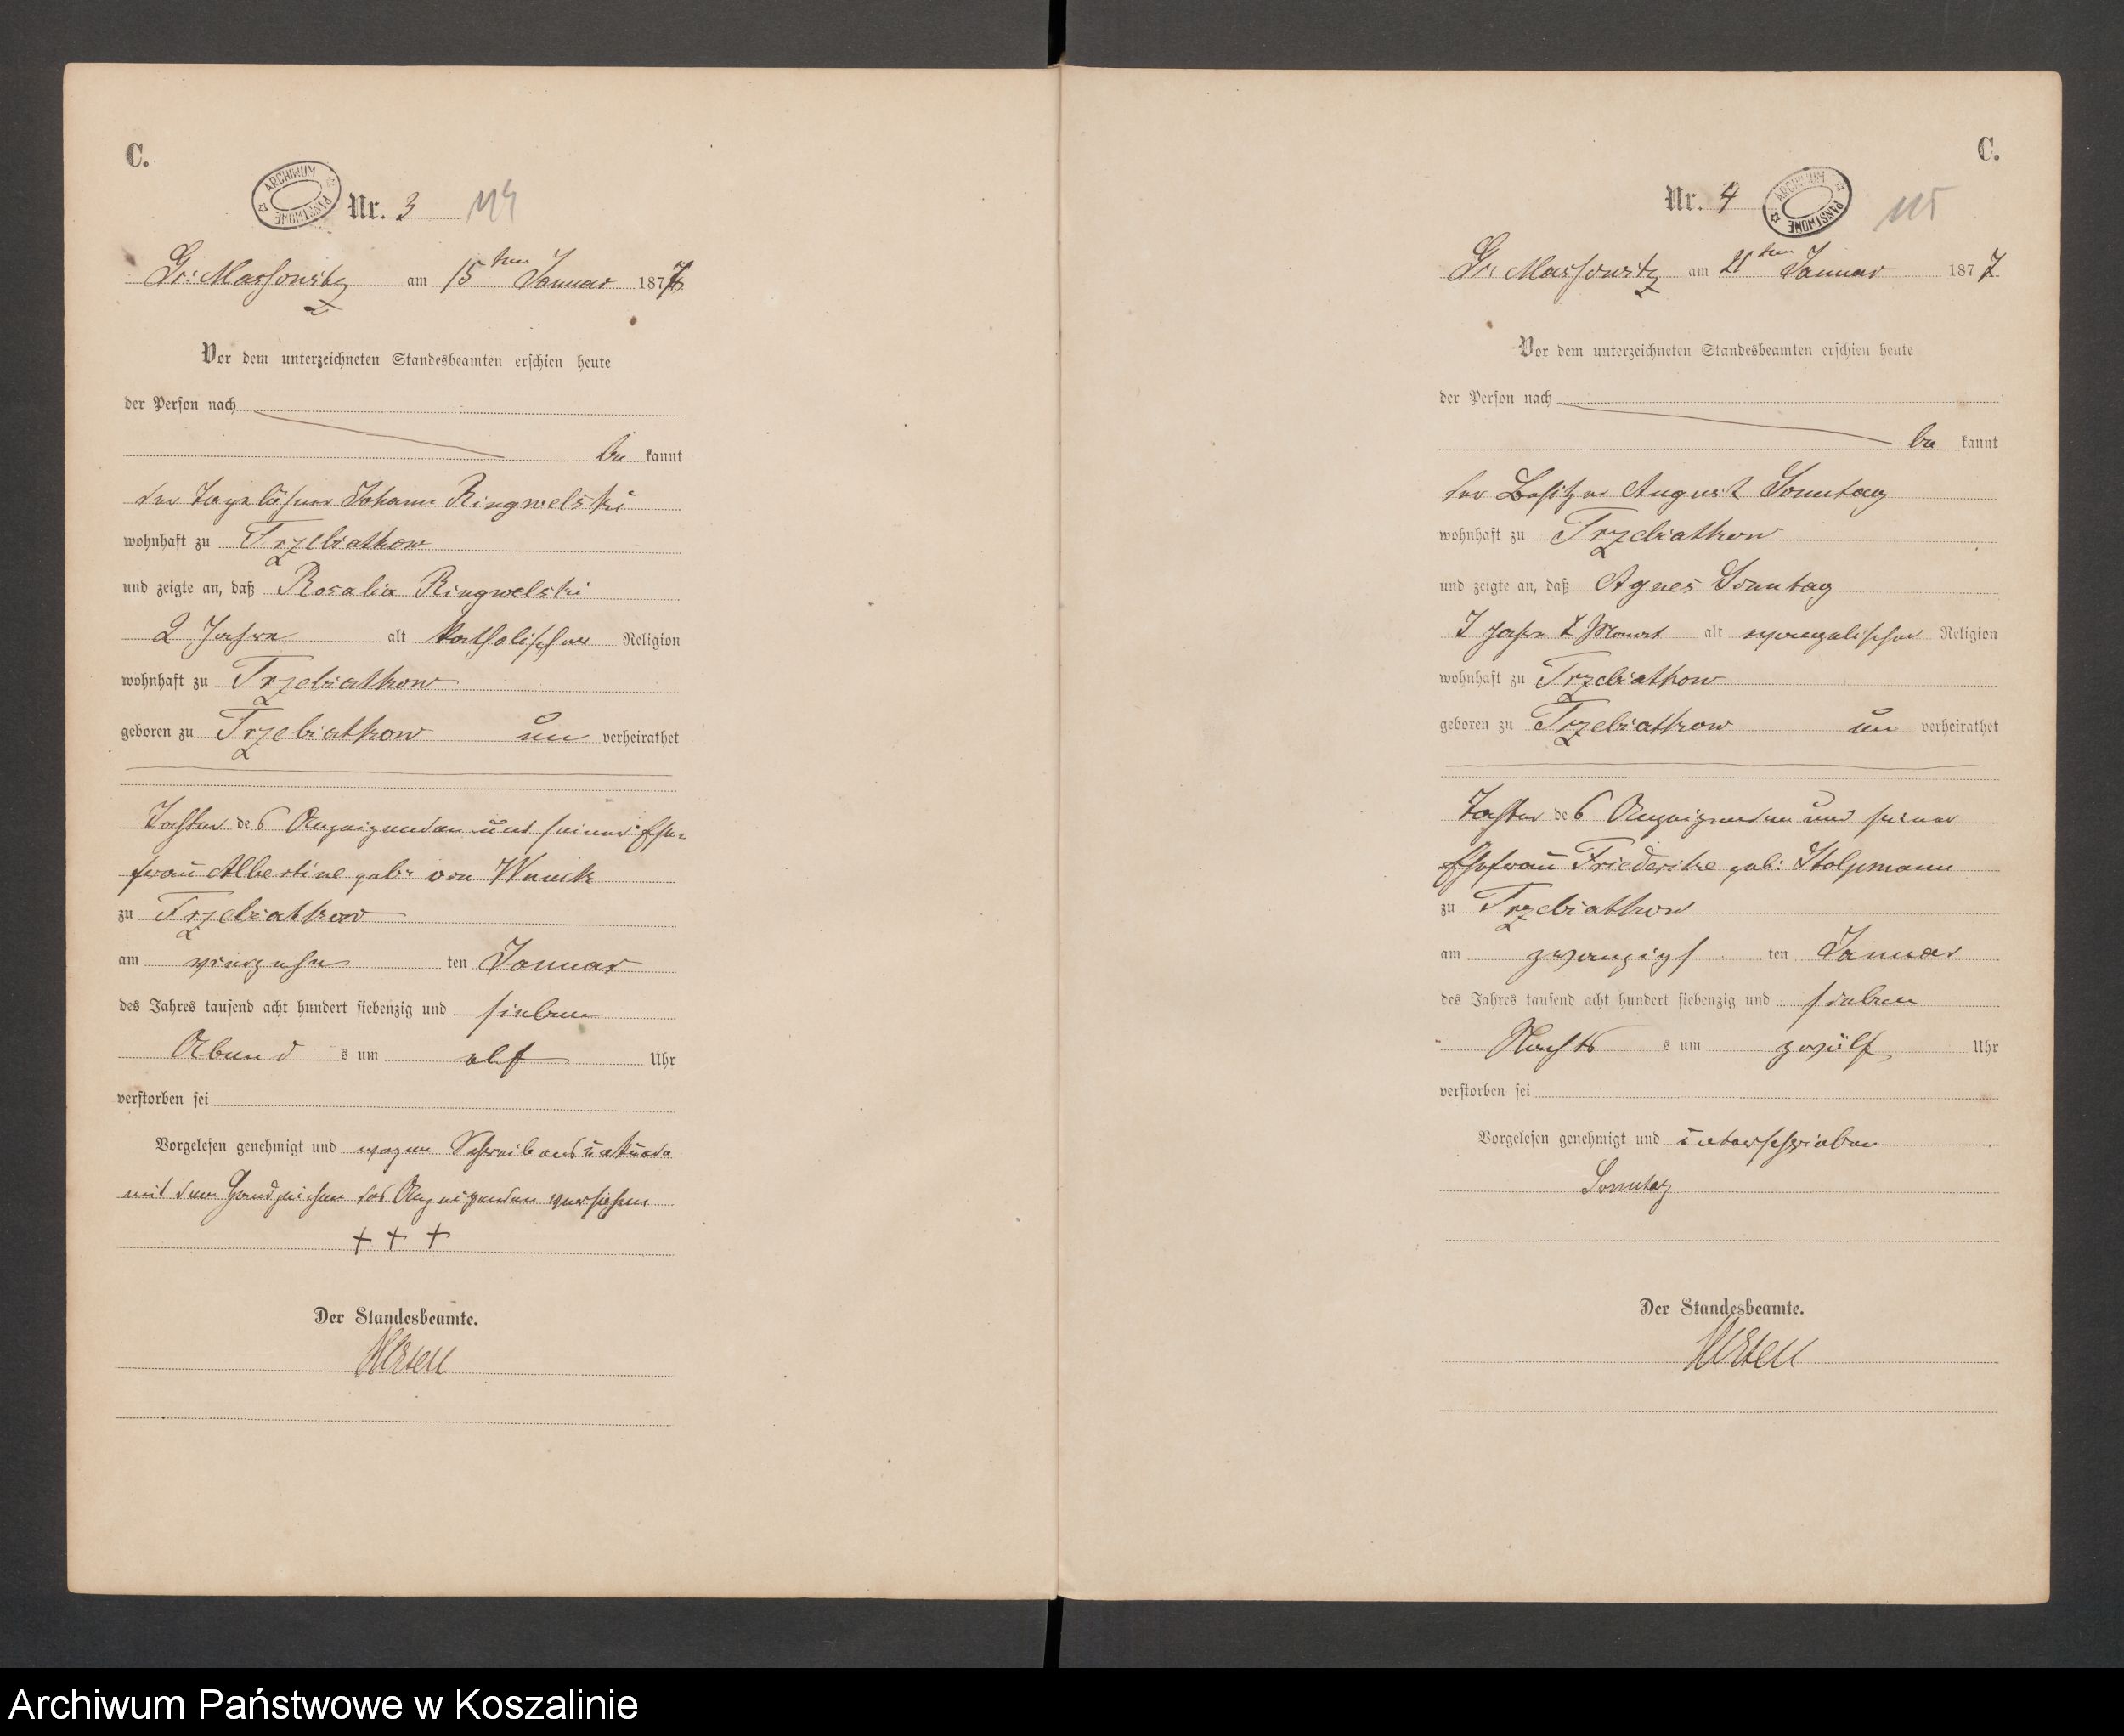 C.
ARCHIWUM PAŃSTWOWE
Nr. 3 114
Gr: Massowitz am 15 ten Januar 1877
Vor dem unterzeichneten Standesbeamten erschien heute
der Person nach
be kannt
der Tagelöhner Johann Ringwelski
wohnhaft zu Trzebiatkow
und zeigte an, daß Rosalia Ringwelski
2 Jahre alt katholischer Religion
wohnhaft zu Trzebiatkow
geboren zu Trzebiatkow un verheirathet
Tochter des Anzeigenden und seiner Ehe-
frau Albertine geb: von Wnuck
zu Trzebiatkow
am vierzehn ten Januar
des Jahres tausend acht hundert siebenzig und sieben
Abend s um elf Uhr
verstorben sei
Vorgelesen genehmigt und wegen Schreibensunkunde
mit dem Handzeichen des Anzeigenden versehen
+ + +
Der Standesbeamte.
C.
Nr. 4 ARCHIWUM PAŃSTWOWE 115
Gr: Massowitz am 21 ten Januar 1877
Vor dem unterzeichneten Standesbeamten erschien heute
der Person nach
be kannt
der Besitzer August Sonntag
wohnhaft zu Trzebiatkow
und zeigte an, daß Agnes Sonntag
Jahre Monat alt evangelischer Religion
wohnhaft zu Trzebiatkow
geboren zu Trzebiatkow un verheirathet
Tochter des Anzeigenden und seiner
Ehefrau Friederike geb: Stolpmann
zu Trzebiatkow
am zwanzigs ten Januar
des Jahres tausend acht hundert siebenzig und sieben
Nacht s um zwölf Uhr
verstorben sei
Vorgelesen genehmigt und unterschrieben
Sonntag
Der Standesbeamte.
Archiwum Państwowe w Koszalinie